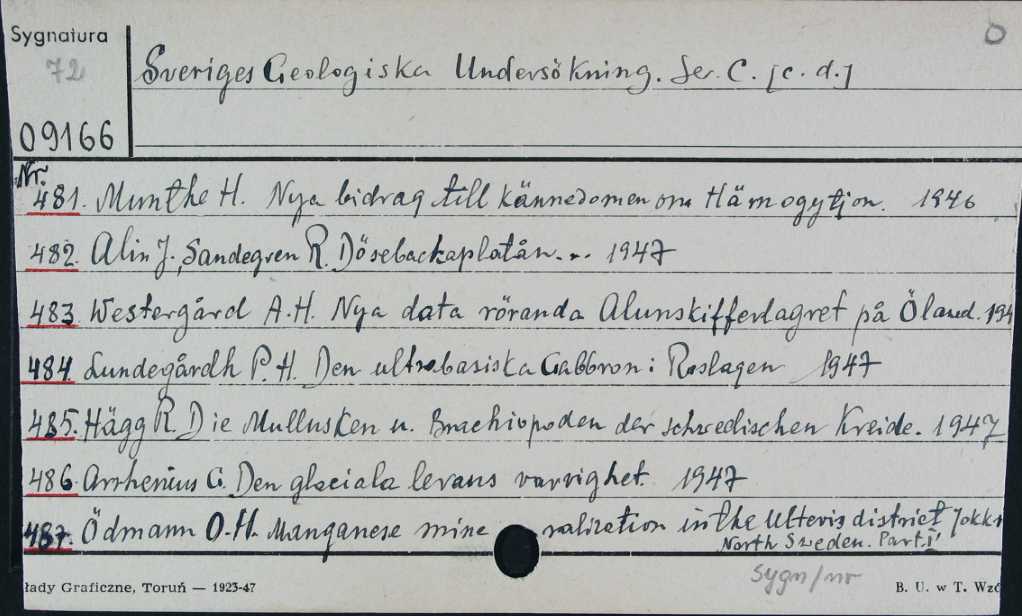 Sygnatura
72
09166
Sveriges Geologiska Undersökning. Ser. C. [c. d.]
Nr.
481. Munthe H. Nya bidrag till kännedomen om Hämogytjon. 1946
482. Alin J., Sandegren R. Dösebackaplatån... 1947
483. Westergård A.H. Nya data röranda Alunskifferlagret på Öland. 194
484. Lundegårdh P. H. Den ultrabasiska Gabbron i Roslagen 1947
485. Hägg R. Die Mullusken u. Brachiopoden der schwedischen Kreide. 1947
486. Arrhenius G. Den glaciala lerans varvighet. 1947
487. Ödmann O.H. Manganese mine ralization in the Ultevis district Jokk
North Sweden. Part. I
Sygn/nr
łady Graficzne, Toruń — 1923-47
B. U. w T. Wzó